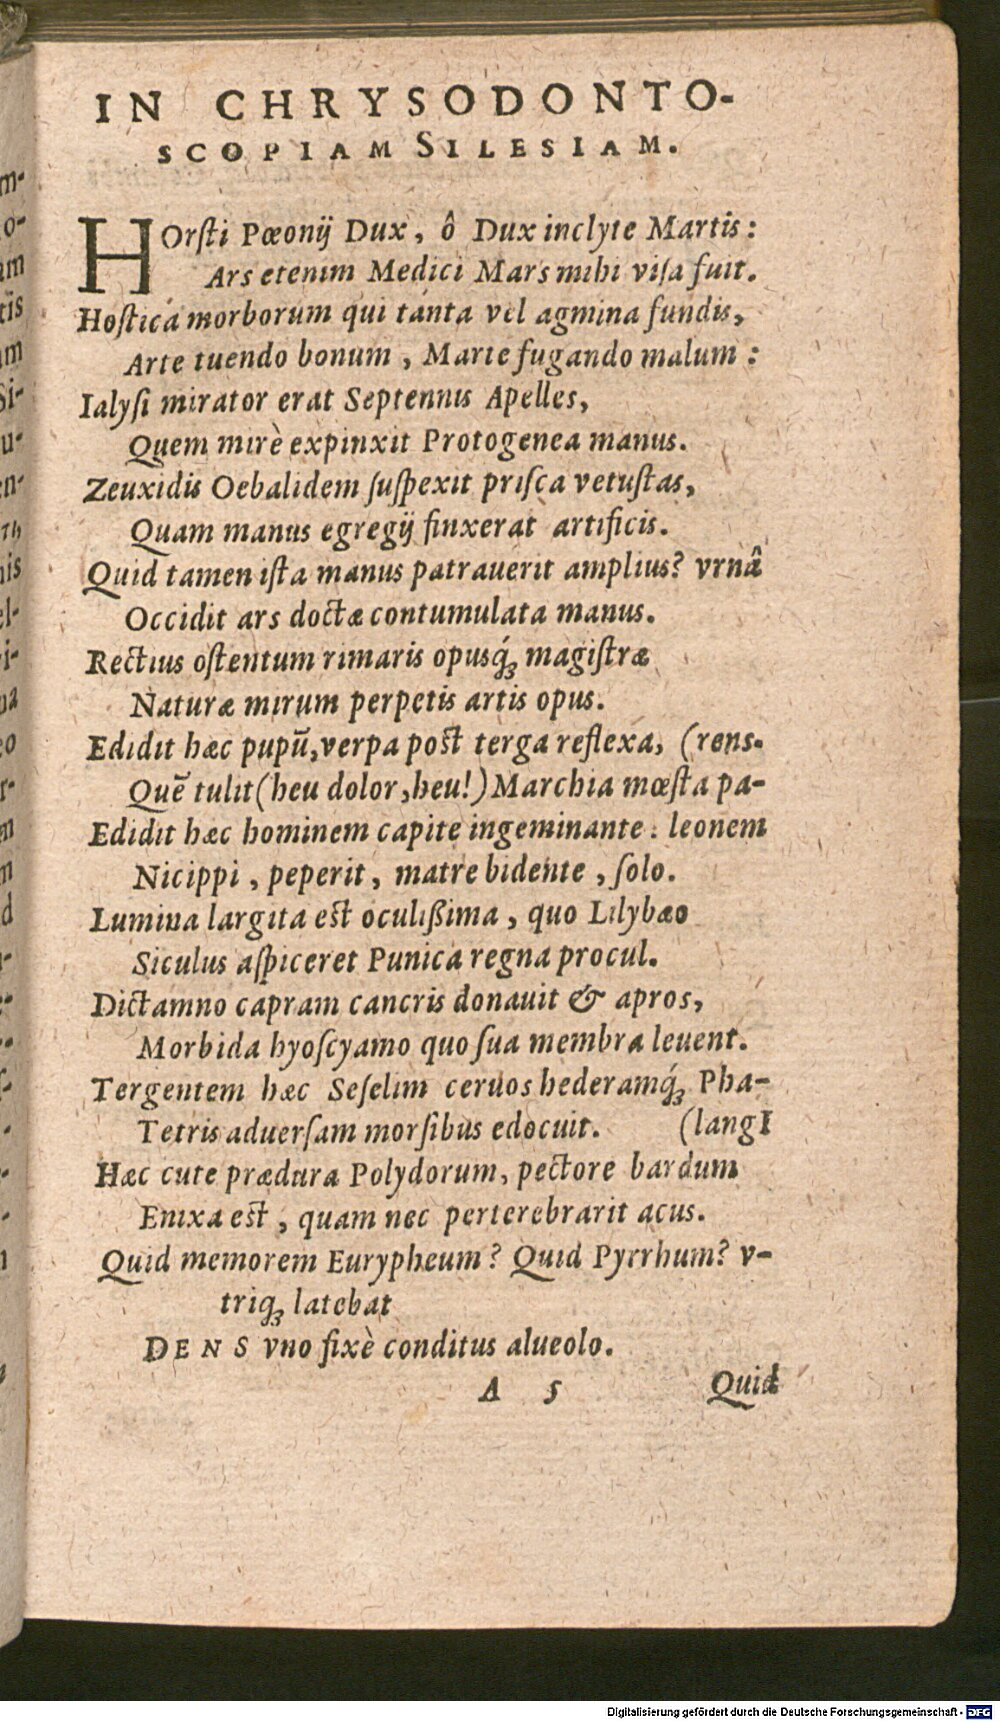 IN CHRYSODONTO-
SCOPIAM SILESIAM.
HOrſti Pœonij Dux, ô Dux inclyte Martis:
Ars etenim Medici Mars mihi viſa fuit.
Hoſticá morborum qui tanta vel agmina fundis,
Arte tuendo bonum, Marte fugando malum:
Ialyſi mirator erat Septennis Apelles,
Quem mirè expinxit Protogenea manus.
Zeuxidis Oebalidem ſuſpexit priſca vetuſtas,
Quam manus egregij finxerat artificis.
Quid tamen iſta manus patrauerit amplius? vrnâ
Occidit ars doctæ contumulata manus.
Rectius oſtentum rimaris opusq́ꝫ magiſtræ
Naturæ mirum perpetis artis opus.
Edidit hæc pupū, verpa poſt terga reflexa, (rens.
Quē tulit (heu dolor, heu!) Marchia mœſta pa-
Edidit hæc hominem capite ingeminante: leonem
Nicippi, peperit, matre bidente, ſolo.
Lumina largita eſt oculißima, quo Lilybæo
Siculus aſpiceret Punica regna procul.
Dictamno capram cancris donauit & apros,
Morbida hyoſcyamo quo ſua membra leuent.
Tergentem hæc Seſelim ceruos hederamq́ꝫ Pha-
Tetris aduerſam morſibus edocuit. (langI
Hæc cute prædura Polydorum, pectore bardum
Enixa eſt, quam nec perterebrarit acus.
Quid memorem Eurypheum? Quid Pyrrhum? v-
triqꝫ latebat
DENS vno fixè conditus alueolo.
A 5 Quid
Digitalisierung gefördert durch die Deutsche Forschungsgemeinschaft - DFG